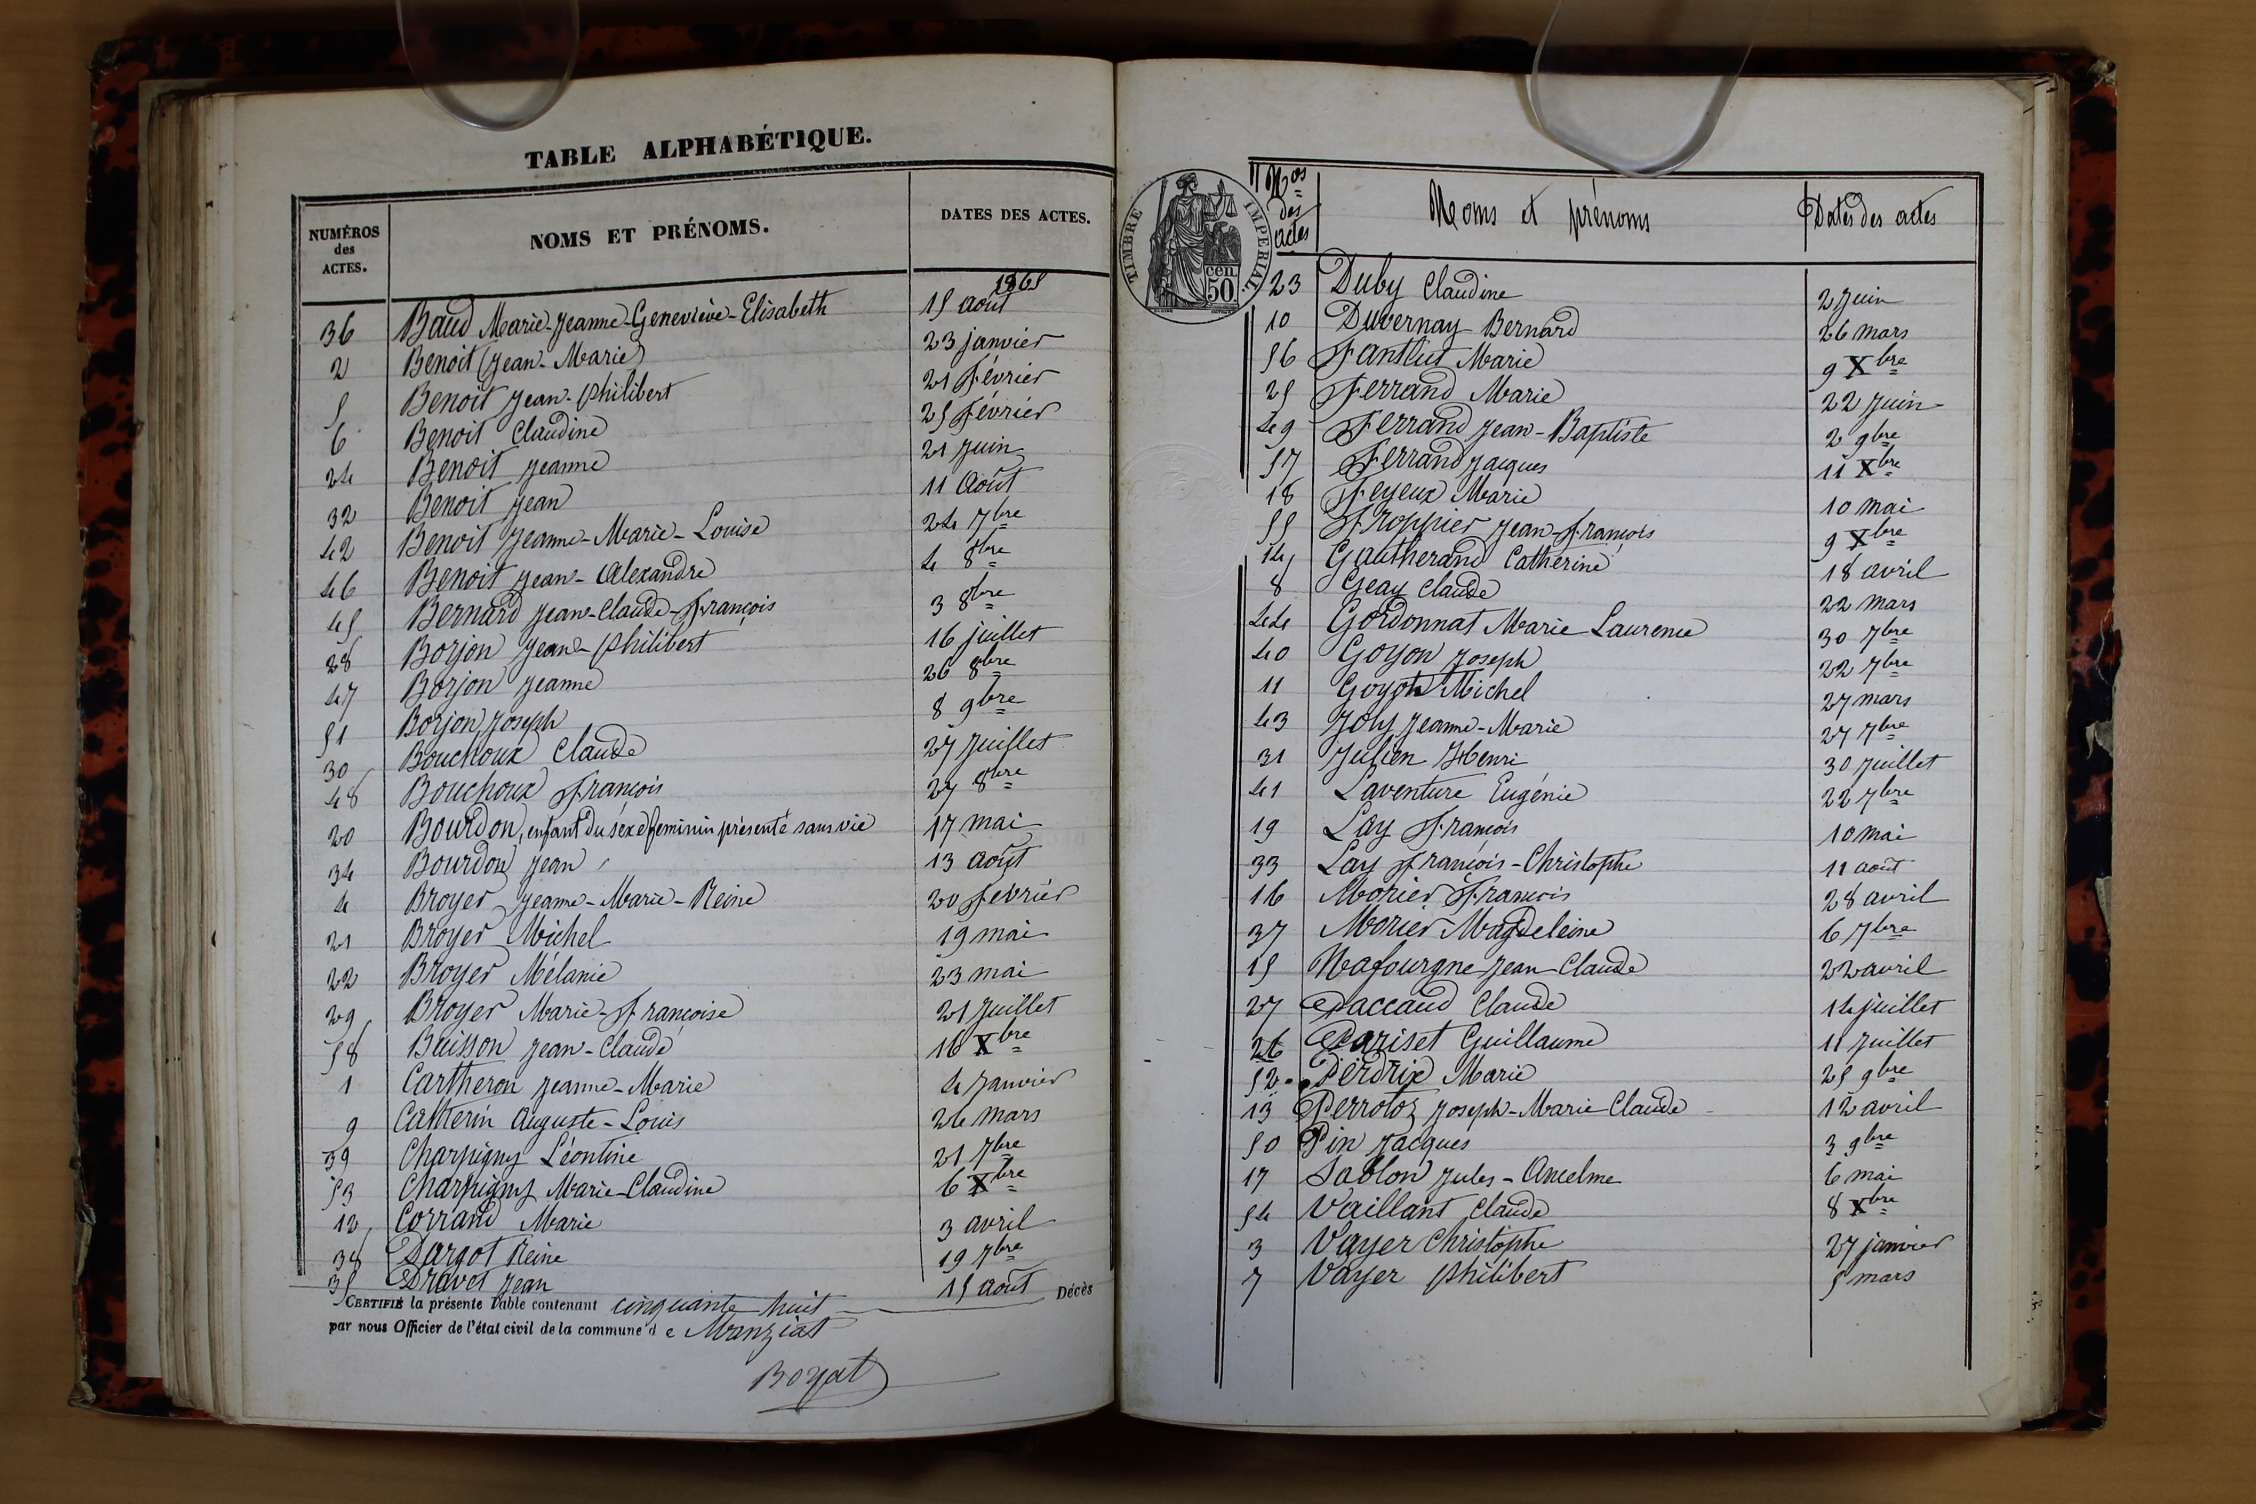 TABLE ALPHABÉTIQUE.
NUMÉROS des ACTES. NOMS ET PRÉNOMS. DATES DES ACTES.
1865
36 Baud Marie-Jeanne-Geneviève-Elisabeth 15 août
2 Benoit (Jean-Marie) 23 janvier
5 Benoit Jean-Philibert 21 Février
6 Benoit Claudine 25 Février
24 Benoit Jeanne 21 Juin
32 Benoit Jean 11 Août
42 Benoit Jeanne-Marie-Louise 24 7bre
46 Benoit Jean-Alexandre 4 8bre
45 Bernard Jean-Claude-François 3 8bre
28 Borjon Jean-Philibert 16 juillet
47 Borjon Jeanne 26 8bre
51 Borjon Joseph 8 9bre
30 Bouchoux Claude 27 Juillet
48 Bouchoux François 27 8bre
20 Bourdon, enfant du séxe feminin présenté sans vie 17 mai
34 Bourdon Jean 13 août
4 Broyer Jeanne-Marie-Reine 20 Février
21 Broyer Michel 19 mai
22 Broyer Mélanie 23 mai
29 Broyer Marie-Françoise 21 Juillet
58 Buisson Jean-Claude 16 Xbre
1 Cartheron Jeanne-Marie 4 Janvier
9 Catherin Auguste-Louis 24 mars
39 Charpigny Léontine 21 7bre
53 Charpigny Marie-Claudine 6 Xbre
12 Corrand Marie 3 avril
38 Dargot Reine 19 7bre
35 Dravet Jean 15 août
CERTIFIÉ la présente Table contenant cinquante huit Décès
par nous Officier de l'état civil de la commune de Manziat
Boyat
TIMBRE IMPERIAL
cen. 50
Nos des actes Noms et prénoms Dates des actes
23 Duby Claudine 2 Juin
10 Duvernay Bernard 26 mars
56 Fantlut Marie 9 Xbre
25 Ferrand Marie 22 Juin
49 Ferrand Jean-Baptiste 2 9bre
57 Ferrand Jacques 11 Xbre
18 Feyeux Marie 10 mai
55 Froppier Jean-François 9 Xbre
14 Gautherand Catherine 18 avril
8 Geay Claude 22 mars
44 Gordonnat Marie Laurence 30 7bre
40 Goyon Joseph 22 7bre
11 Goyon Michel 27 mars
43 Joly Jeanne-Marie 27 7bre
31 Julien Henri 30 Juillet
41 Laventure Eugénie 22 7bre
19 Lay François 10 mai
33 Lay François-Christophe 11 août
16 Morier François 28 avril
37 Morier Magdeleine 6 7bre
15 Nafourgne Jean Claude 22 avril
27 Paccaud Claude 14 juillet
26 Pariset Guillaume 11 Juillet
52 Perdrix Marie 25 9bre
13 Perrotoz Joseph-Marie Claude 12 avril
50 Pin Jacques 3 9bre
17 Sablon Jules-Ancelme 6 mai
54 Vaillant Claude 8 Xbre
3 Vayer Christophe 27 janvier
7 Vayer Philibert 5 mars